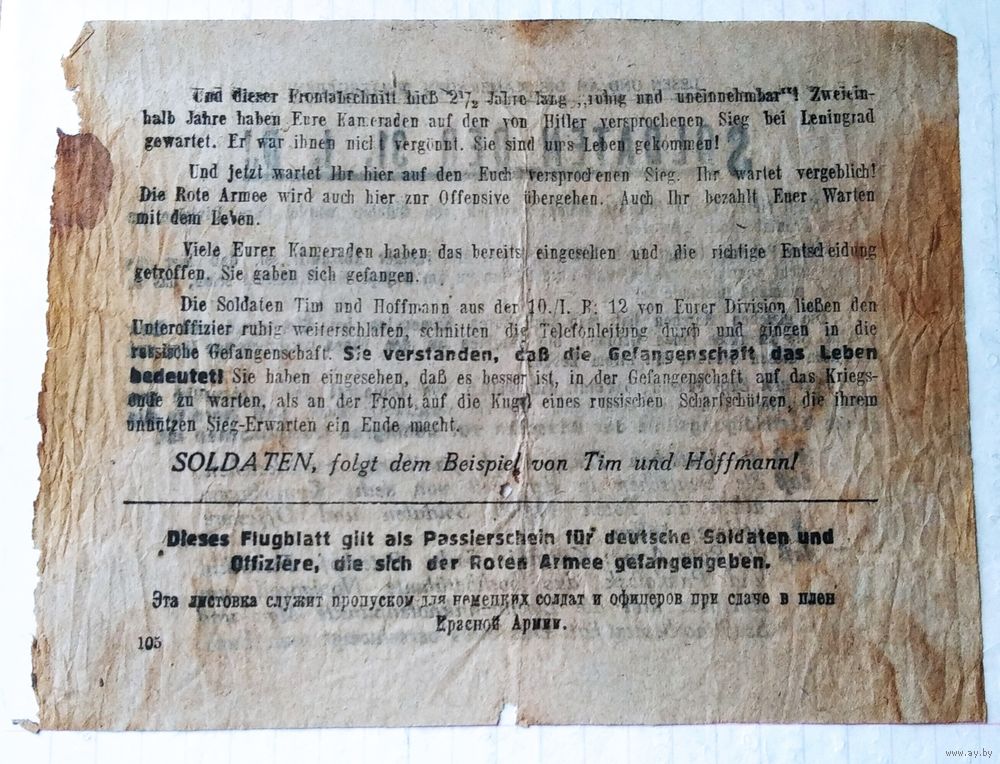 Und dieser Frontabschnitt hieß 2¹/₂ Jahre lang „ruhig und uneinnehmbar“! Zweiein-
halb Jahre haben Eure Kameraden auf den von Hitler versprochenen Sieg bei Leningrad
gewartet. Er war ihnen nicht vergönnt. Sie sind ums Leben gekommen!
Und jetzt wartet Ihr hier auf den Euch versprochenen Sieg. Ihr wartet vergeblich!
Die Rote Armee wird auch hier zur Offensive übergehen. Auch Ihr bezahlt Euer Warten
mit dem Leben.
Viele Eurer Kameraden haben das bereits eingesehen und die richtige Entscheidung
getroffen. Sie gaben sich gefangen.
Die Soldaten Tim und Hoffmann aus der 10./I. R. 12 von Eurer Division ließen den
Unteroffizier ruhig weiterschlafen, schnitten die Telefonleitung durch und gingen in die
russische Gefangenschaft. Sie verstanden, daß die Gefangenschaft das Leben
bedeutet! Sie haben eingesehen, daß es besser ist, in der Gefangenschaft auf das Kriegs-
ende zu warten, als an der Front auf die Kugel eines russischen Scharfschützen, die ihrem
unnützen Sieg-Erwarten ein Ende macht.
SOLDATEN, folgt dem Beispiel von Tim und Hoffmann!
Dieses Flugblatt gilt als Passierschein für deutsche Soldaten und
Offiziere, die sich der Roten Armee gefangengeben.
Эта листовка служит пропуском для немецких солдат и офицеров при сдаче в плен
Красной Армии.
105
www.ay.by